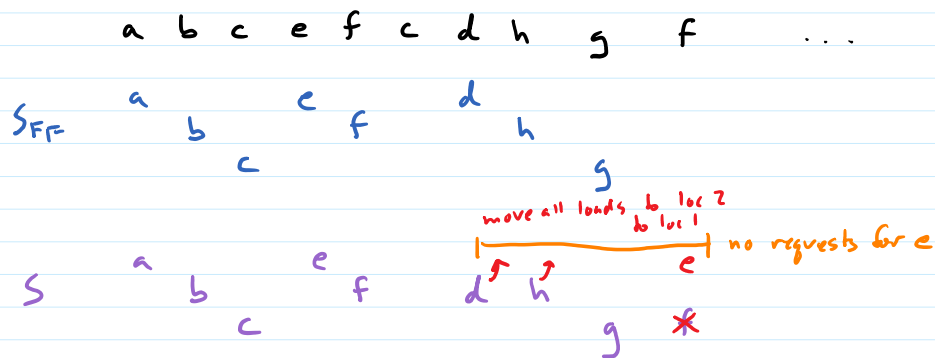 a b c e f c d h g f ...
a e d
S_FF b f h
c g
move all loads to loc 2
to loc 1
no requests for e
a e e
S b f d h
c g f